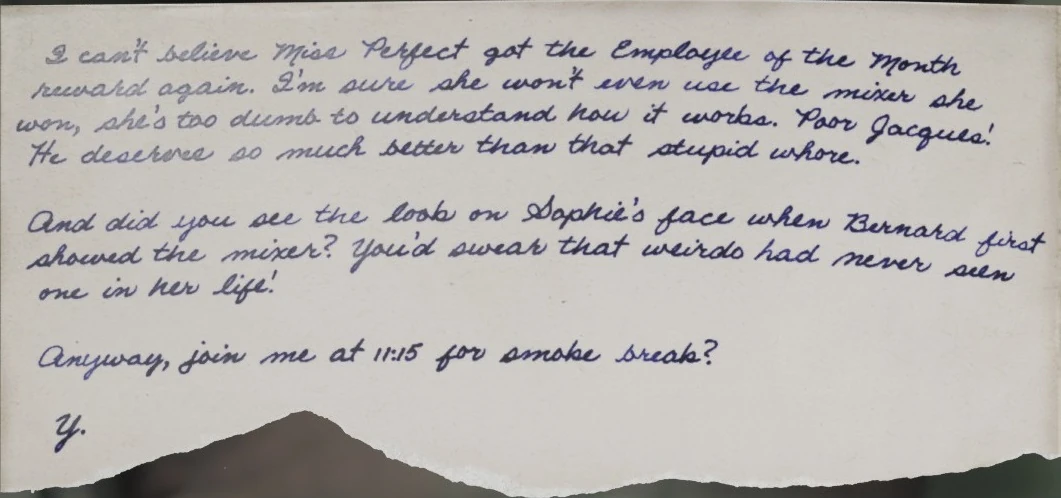 I can't believe Miss Perfect got the Employee of the Month
reward again. I'm sure she won't even use the mixer she
won, she's too dumb to understand how it works. Poor Jacques!
He deserves so much better than that stupid whore.
And did you see the look on Sophie's face when Bernard first
showed the mixer? You'd swear that weirdo had never seen
one in her life!
Anyway, join me at 11:15 for smoke break?
Y.